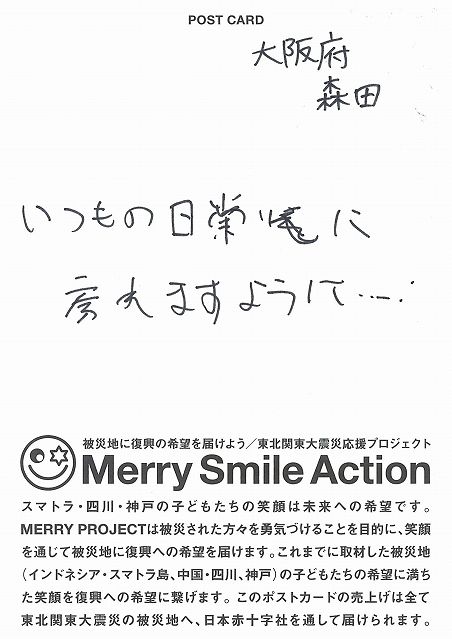 POST CARD
大阪府
森田
いつもの日常に
戻れますように….
被災地に復興の希望を届けよう／東北関東大震災応援プロジェクト
Merry Smile Action
スマトラ・四川・神戸の子どもたちの笑顔は未来への希望です。
MERRY PROJECTは被災された方々を勇気づけることを目的に、笑顔
を通じて被災地に復興への希望を届けます。これまでに取材した被災地
（インドネシア・スマトラ島、中国・四川、神戸）の子どもたちの希望に満ち
た笑顔を復興への希望に繋げます。このポストカードの売上げは全て
東北関東大震災の被災地へ、日本赤十字社を通して届けられます。